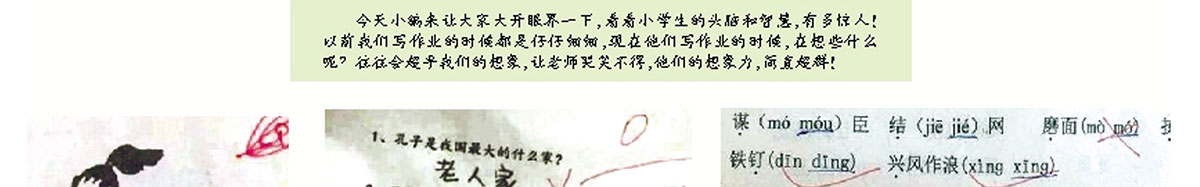 今天小编来让大家大开眼界一下,看看小学生的头脑和智慧,有多惊人!
以前我们写作业的时候都是仔仔细细,现在他们写作业的时候,在想些什么
呢?往往会超乎我们的想象,让老师哭笑不得,他们的想象力,简直超群!
1、孔子是我国最大的什么家?
老人家
谋(mó móu)臣 结(jiē jié)网 磨面(mò mó)
铁钉(dīn dīng) 兴风作浪(xìng xīng)